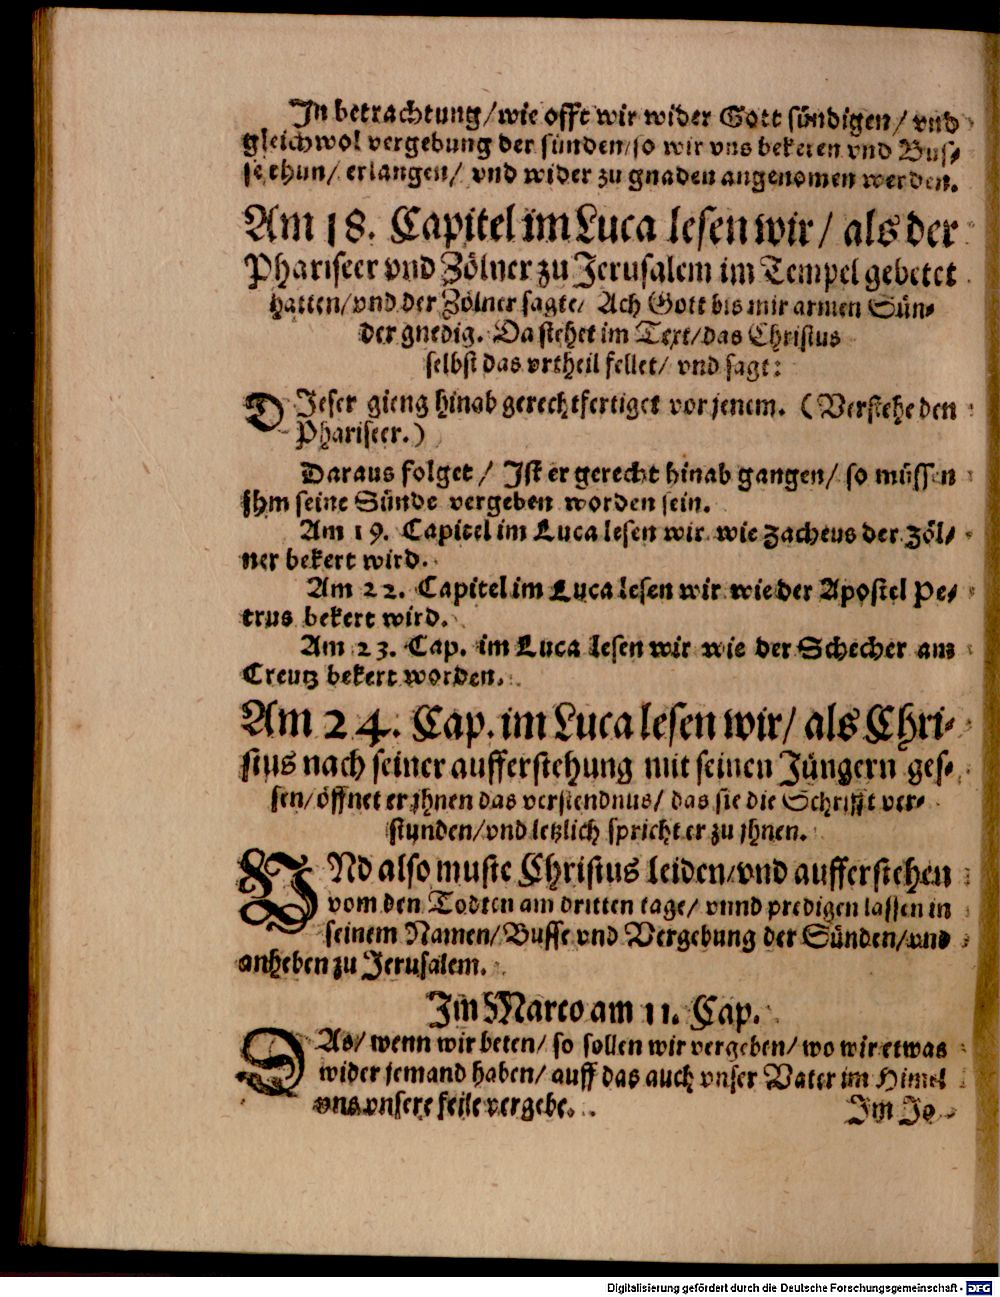 In betrachtung/ wie offt wir wider Gott sündigen/ vnd
gleichwol vergebung der sünden/ so wir vns bekeren vnd Bus-
se thun/ erlangen/ vnd wider zu gnaden angenomen werden.
Am 18. Capitel im Luca lesen wir/ als der
Phariseer vnd Zölner zu Jerusalem im Tempel gebetet
hatten/ vnd der Zölner sagte/ Ach Gott bis mir armen Sün-
der gnedig. Da stehet im Text/ das Christus
selbst das vrtheil fellet/ vnd sagt:
DIeser gieng hinab gerechtfertiget vor jenem. (Verstehe den
Phariseer.)
Daraus folget/ Ist er gerecht hinab gangen/ so müssen
jhm seine Sünde vergeben worden sein.
Am 19. Capitel im Luca lesen wir wie Zacheus der Zöl-
ner bekert wird.
Am 22. Capitel im Luca lesen wir wie der Apostel Pe-
trus bekert wird.
Am 23. Cap. im Luca lesen wir wie der Schecher am
Creutz bekert worden.
Am 24. Cap. im Luca lesen wir/ als Chri-
stus nach seiner aufferstehung mit seinen Jüngern ges-
sen/ öffnet er jhnen das verstendnus/ das sie die Schrifft ver-
stunden/ vnd letzlich spricht er zu jhnen.
VNd also muste Christus leiden/ vnd aufferstehen
vom den Todten am dritten tage/ vnnd predigen lassen in
seinem Namen/ Busse vnd Vergebung der Sünden/ vnd
anheben zu Jerusalem.
Im Marco am 11. Cap.
DAs/ wenn wir beten/ so sollen wir vergeben/ wo wir etwas
wider jemand haben/ auff das auch vnser Vater im Himel
vns vnsere feile vergebe.
Im Jo-
Digitalisierung gefördert durch die Deutsche Forschungsgemeinschaft - DFG